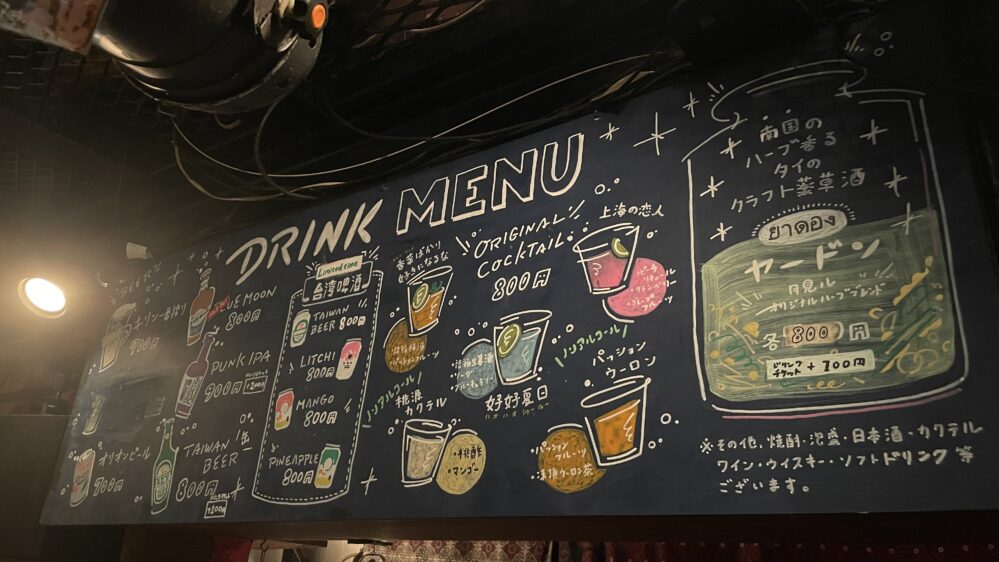 DRINK MENU
BEER
キリン一番搾り
900円
BLUE MOON
800円
PUNK IPA
900円
+100円
オリオンビール
900円
TAIWAN
BEER 生
800円
+100円
Limited time
台湾啤酒
TAIWAN
BEER 800円
LITCHI
800円
MANGO
800円
PINEAPPLE
800円
ORIGINAL
COCKTAIL
800円
香菜ばかり
好きになるな
・パッションフルーツ
上海の恋人
・クランベリー
・グレープ
フルーツ
好好夏日
ハオハオシャールー
ノンアルコール
桃源
カクテル
・桃酢
・マンゴー
ノンアルコール
パッション
ウーロン
・パッション
フルーツ
・凍頂ウーロン茶
南国の
ハーブ香る
タイの
クラフト薬草酒
ยาดอง
ヤードン
月見ル
オリジナルハーブブレンド
各 800円
ドリンク
チケット +100円
※その他、焼酎・泡盛・日本酒・カクテル
ワイン・ウイスキー・ソフトドリンク 等
ございます。